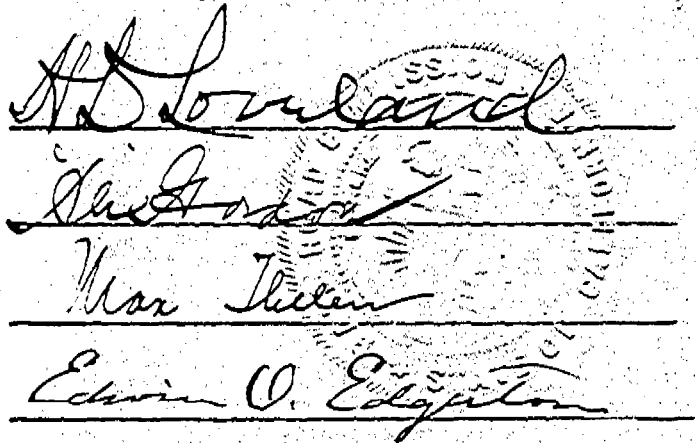 H D Loveland
Alex Gordon
Max Thelen
Edwin O. Edgerton